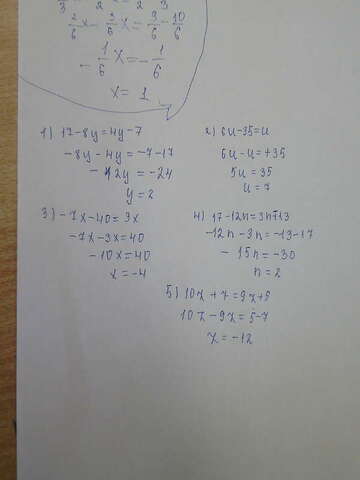 2/6x - 3/6x = 9/6 - 10/6
- 1/6 x = - 1/6
x = 1
1) 17-8y=4y-7
-8y-4y=-7-17
-12y=-24
y=2
2) 6u-35=u
6u-u=+35
5u=35
u=7
3) -7x-40=3x
-7x-3x=40
-10x=40
x=-4
4) 17-12n=3n+13
-12n-3n=-13-17
-15n=-30
n=2
5) 10z+7=9z+5
10z-9z=5-7
z=-12